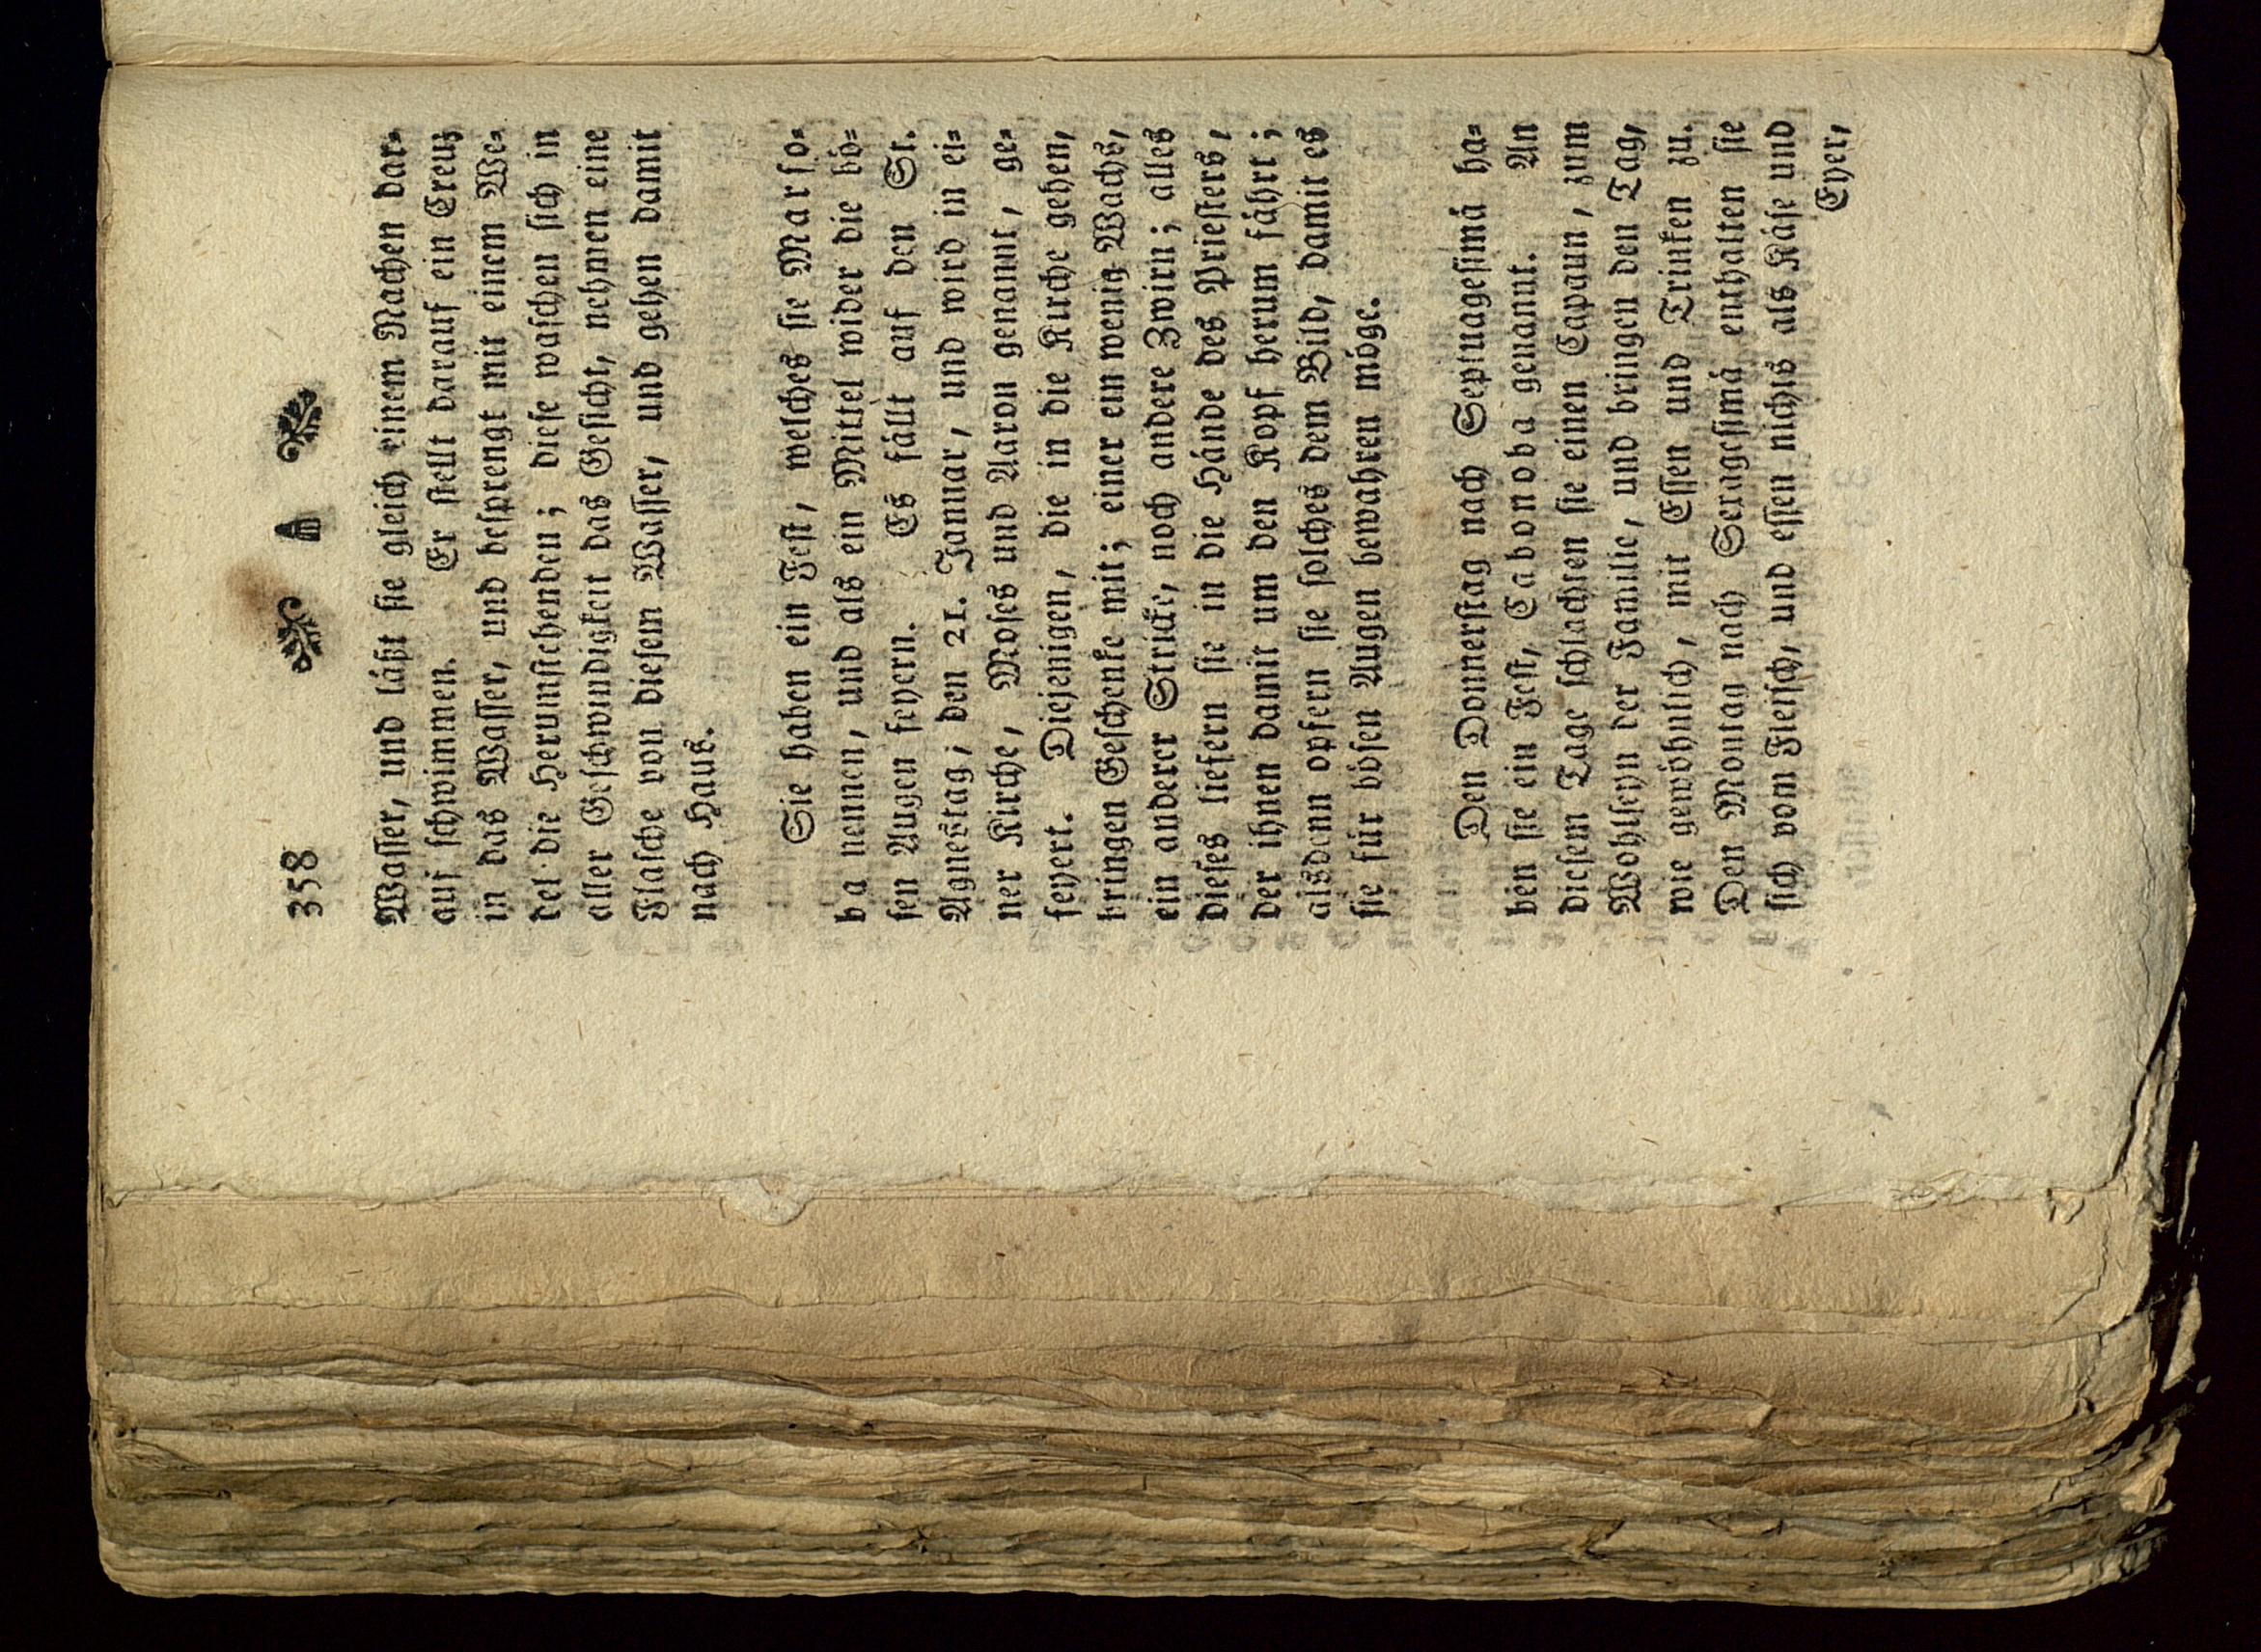 358
Waſſer, und läßt ſie gleich einem Nachen dar⸗
auf ſchwimmen. Er ſtellt darauf ein Creuz
in das Waſſer, und beſprengt mit einem We⸗
del die Herumſtehenden; dieſe waſchen ſich in
aller Geſchwindigkeit das Geſicht, nehmen eine
Flaſche von dieſem Waſſer, und gehen damit
nach Haus.
Sie haben ein Feſt, welches ſie Marſo⸗
ba nennen, und als ein Mittel wider die bö⸗
ſen Augen feyern. Es fällt auf den St.
Agnestag, den 21. Januar, und wird in ei⸗
ner Kirche, Moſes und Aaron genannt, ge⸗
feyert. Diejenigen, die in die Kirche gehen,
bringen Geſchenke mit; einer ein wenig Wachs,
ein anderer Stricke, noch andere Zwirn; alles
dieſes liefern ſie in die Hände des Prieſters,
der ihnen damit um den Kopf herum fährt;
alsdenn opfern ſie ſolches dem Bild, damit es
ſie für böſen Augen bewahren möge.
Den Donnerſtag nach Septuageſimä ha⸗
ben ſie ein Feſt, Cabonoba genannt. An
dieſem Tage ſchlachten ſie einen Capaun, zum
Wohlſeyn der Familie, und bringen den Tag,
wie gewöhnlich, mit Eſſen und Trinken zu.
Den Montag nach Sexageſimä enthalten ſie
ſich vom Fleiſch, und eſſen nichts als Käſe und
Eyer,